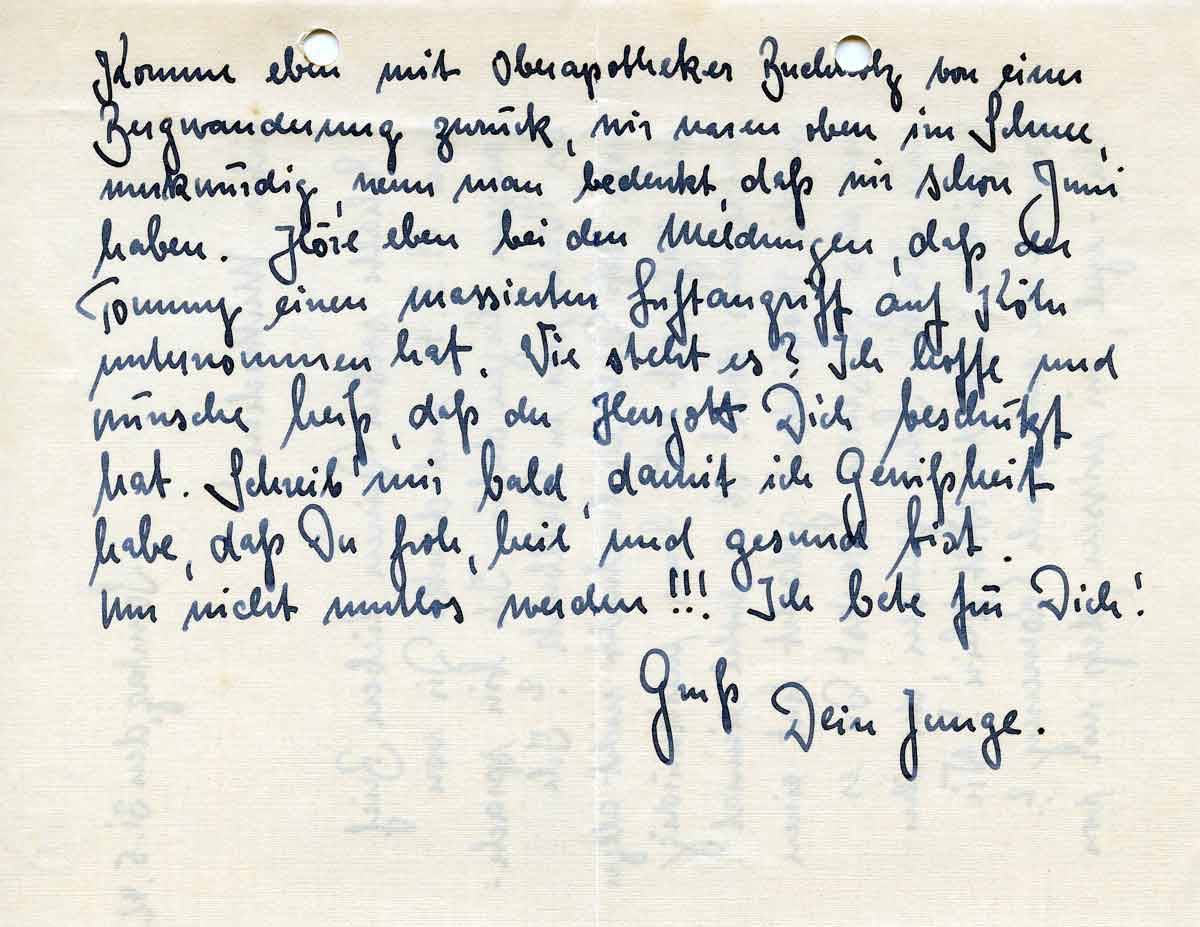 Komme eben mit Oberapotheker Buchholz von einer
Bergwanderung zurück, wir waren oben im Schnee,
merkwürdig, wenn man bedenkt, daß wir schon Juni
haben. Höre eben bei den Meldungen, daß der
Tommy einen massierten Luftangriff auf Köln
unternommen hat. Wie steht es? Ich hoffe und
wünsche heiß, daß der Herrgott Dich beschützt
hat. Schreib' mir bald, damit ich Gewißheit
habe, daß Du froh, heil und gesund bist.
Nur nicht mutlos werden!!! Ich bete für Dich!
Gruß
Dein Junge.